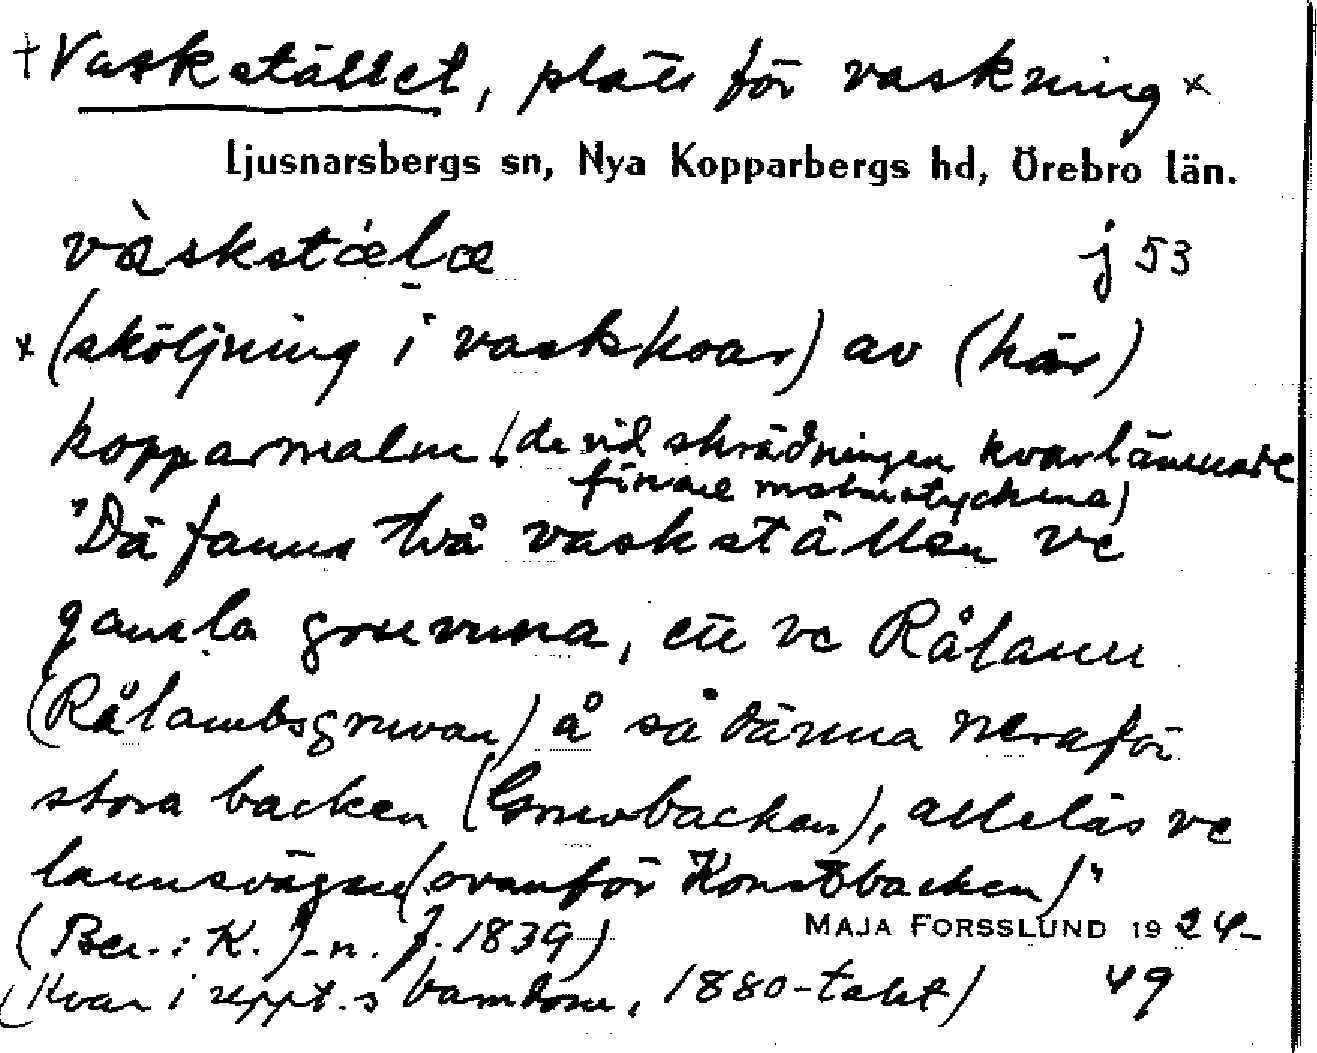 † Vaskstället, plats för vaskning ×
Ljusnarsbergs sn, Nya Kopparbergs hd, Örebro län.
vàskstælæ j 53
× (sköljning i vaskkoar) av (här)
kopparmalm (de vid skrädningen kvarlämnade
finare malmstyckena)
"Dä fanns två vaskställen ve
gamla gruvuna, ett ve Rålamm
(Rålambsgruvan) å så dänna neraför
stora backen (Gruvbacken), alleläs ve
lannsvägen (ovanför Konstbacken)"
(Ber.: K. J-n. f. 1839) MAJA FORSSLUND 19 24-
(Kvar i uppt.s barndom, 1880-talet) 49